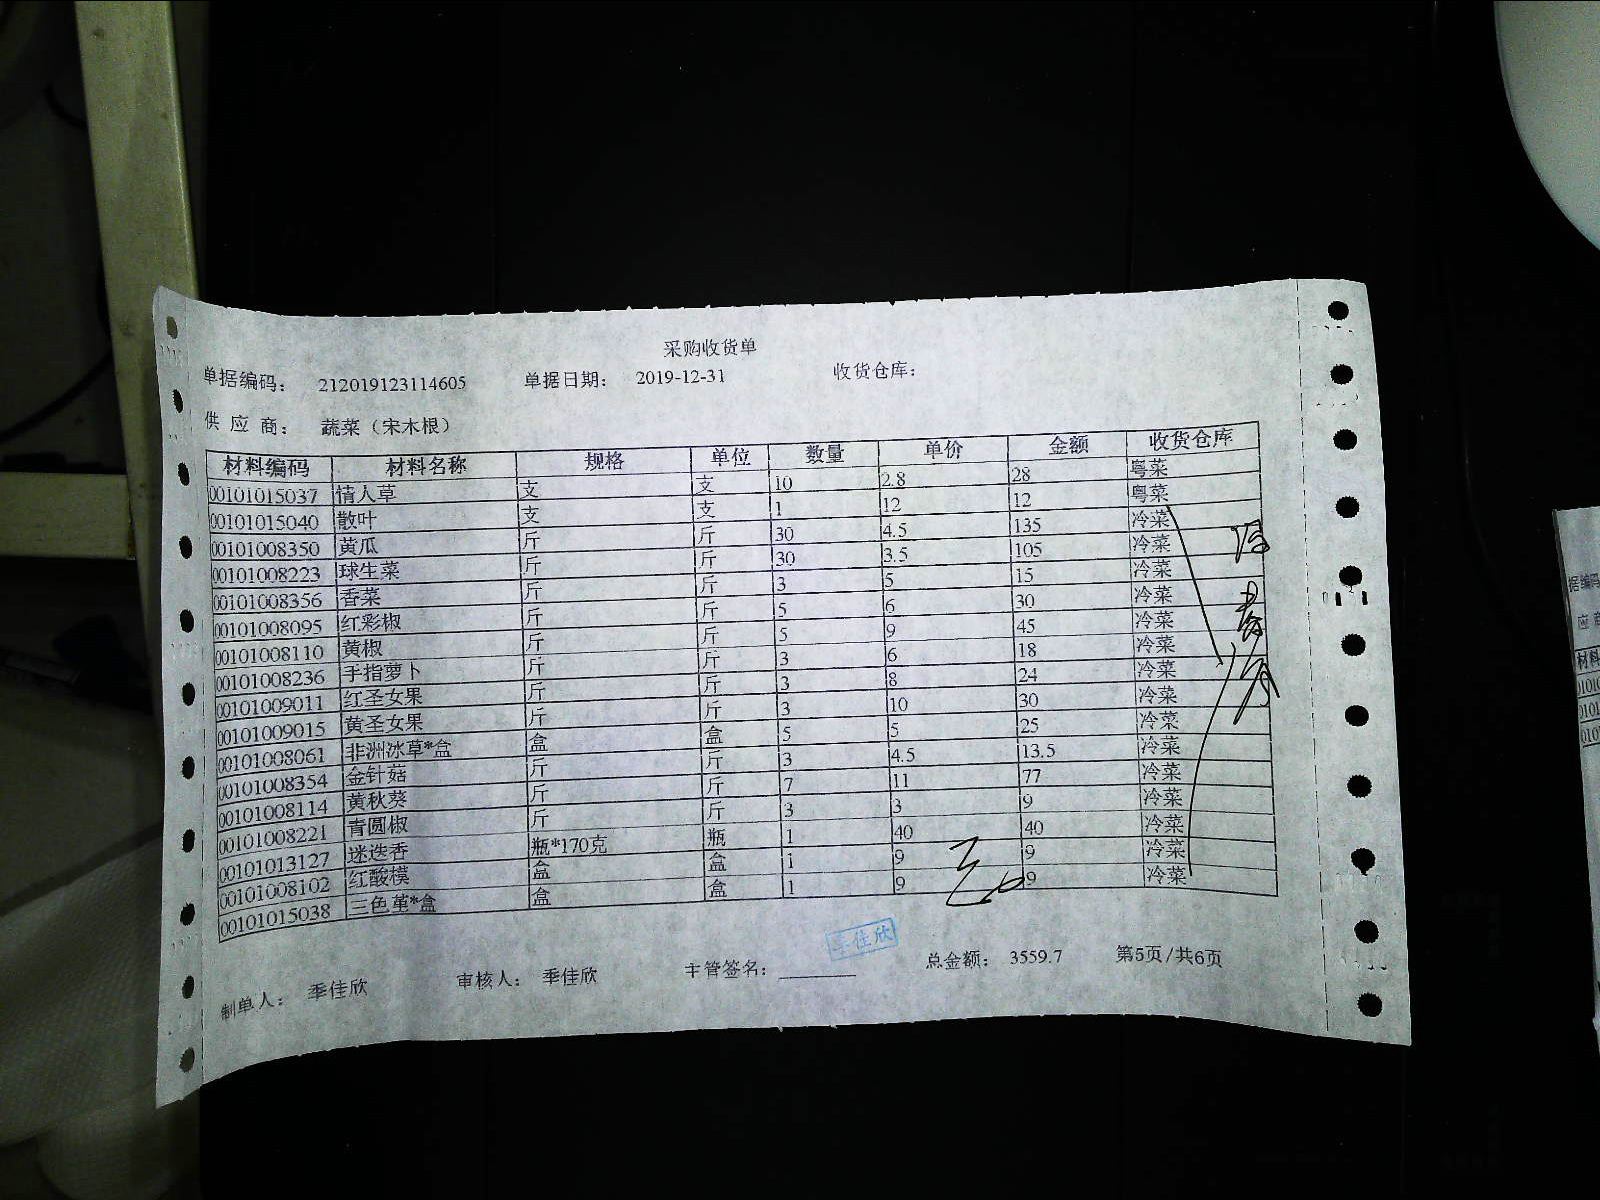 采购收货单
单据编码： 212019123114605 单据日期： 2019-12-31 收货仓库：
供 应 商： 蔬菜（宋木根）
材料编码 材料名称 规格 单位 数量 单价 金额 收货仓库
00101015037 情人草 支 支 10 2.8 28 粤菜
00101015040 散叶 支 支 1 12 12 粤菜
00101008350 黄瓜 斤 斤 30 4.5 135 冷菜
00101008223 球生菜 斤 斤 30 3.5 105 冷菜
00101008356 香菜 斤 斤 3 5 15 冷菜
00101008095 红彩椒 斤 斤 5 6 30 冷菜
00101008110 黄椒 斤 斤 5 9 45 冷菜
00101008236 手指萝卜 斤 斤 3 6 18 冷菜
00101009011 红圣女果 斤 斤 3 8 24 冷菜
00101009015 黄圣女果 斤 斤 3 10 30 冷菜
00101008061 非洲冰草*盒 盒 盒 5 5 25 冷菜
00101008354 金针菇 斤 斤 3 4.5 13.5 冷菜
00101008114 黄秋葵 斤 斤 7 11 77 冷菜
00101008221 青圆椒 斤 斤 3 3 9 冷菜
00101013127 迷迭香 瓶*170克 瓶 1 40 40 冷菜
00101008102 红酸模 盒 盒 1 9 9 冷菜
00101015038 三色堇*盒 盒 盒 1 9 9 冷菜
季佳欣
制单人： 季佳欣 审核人： 季佳欣 主管签名： 总金额： 3559.7 第5页/共6页